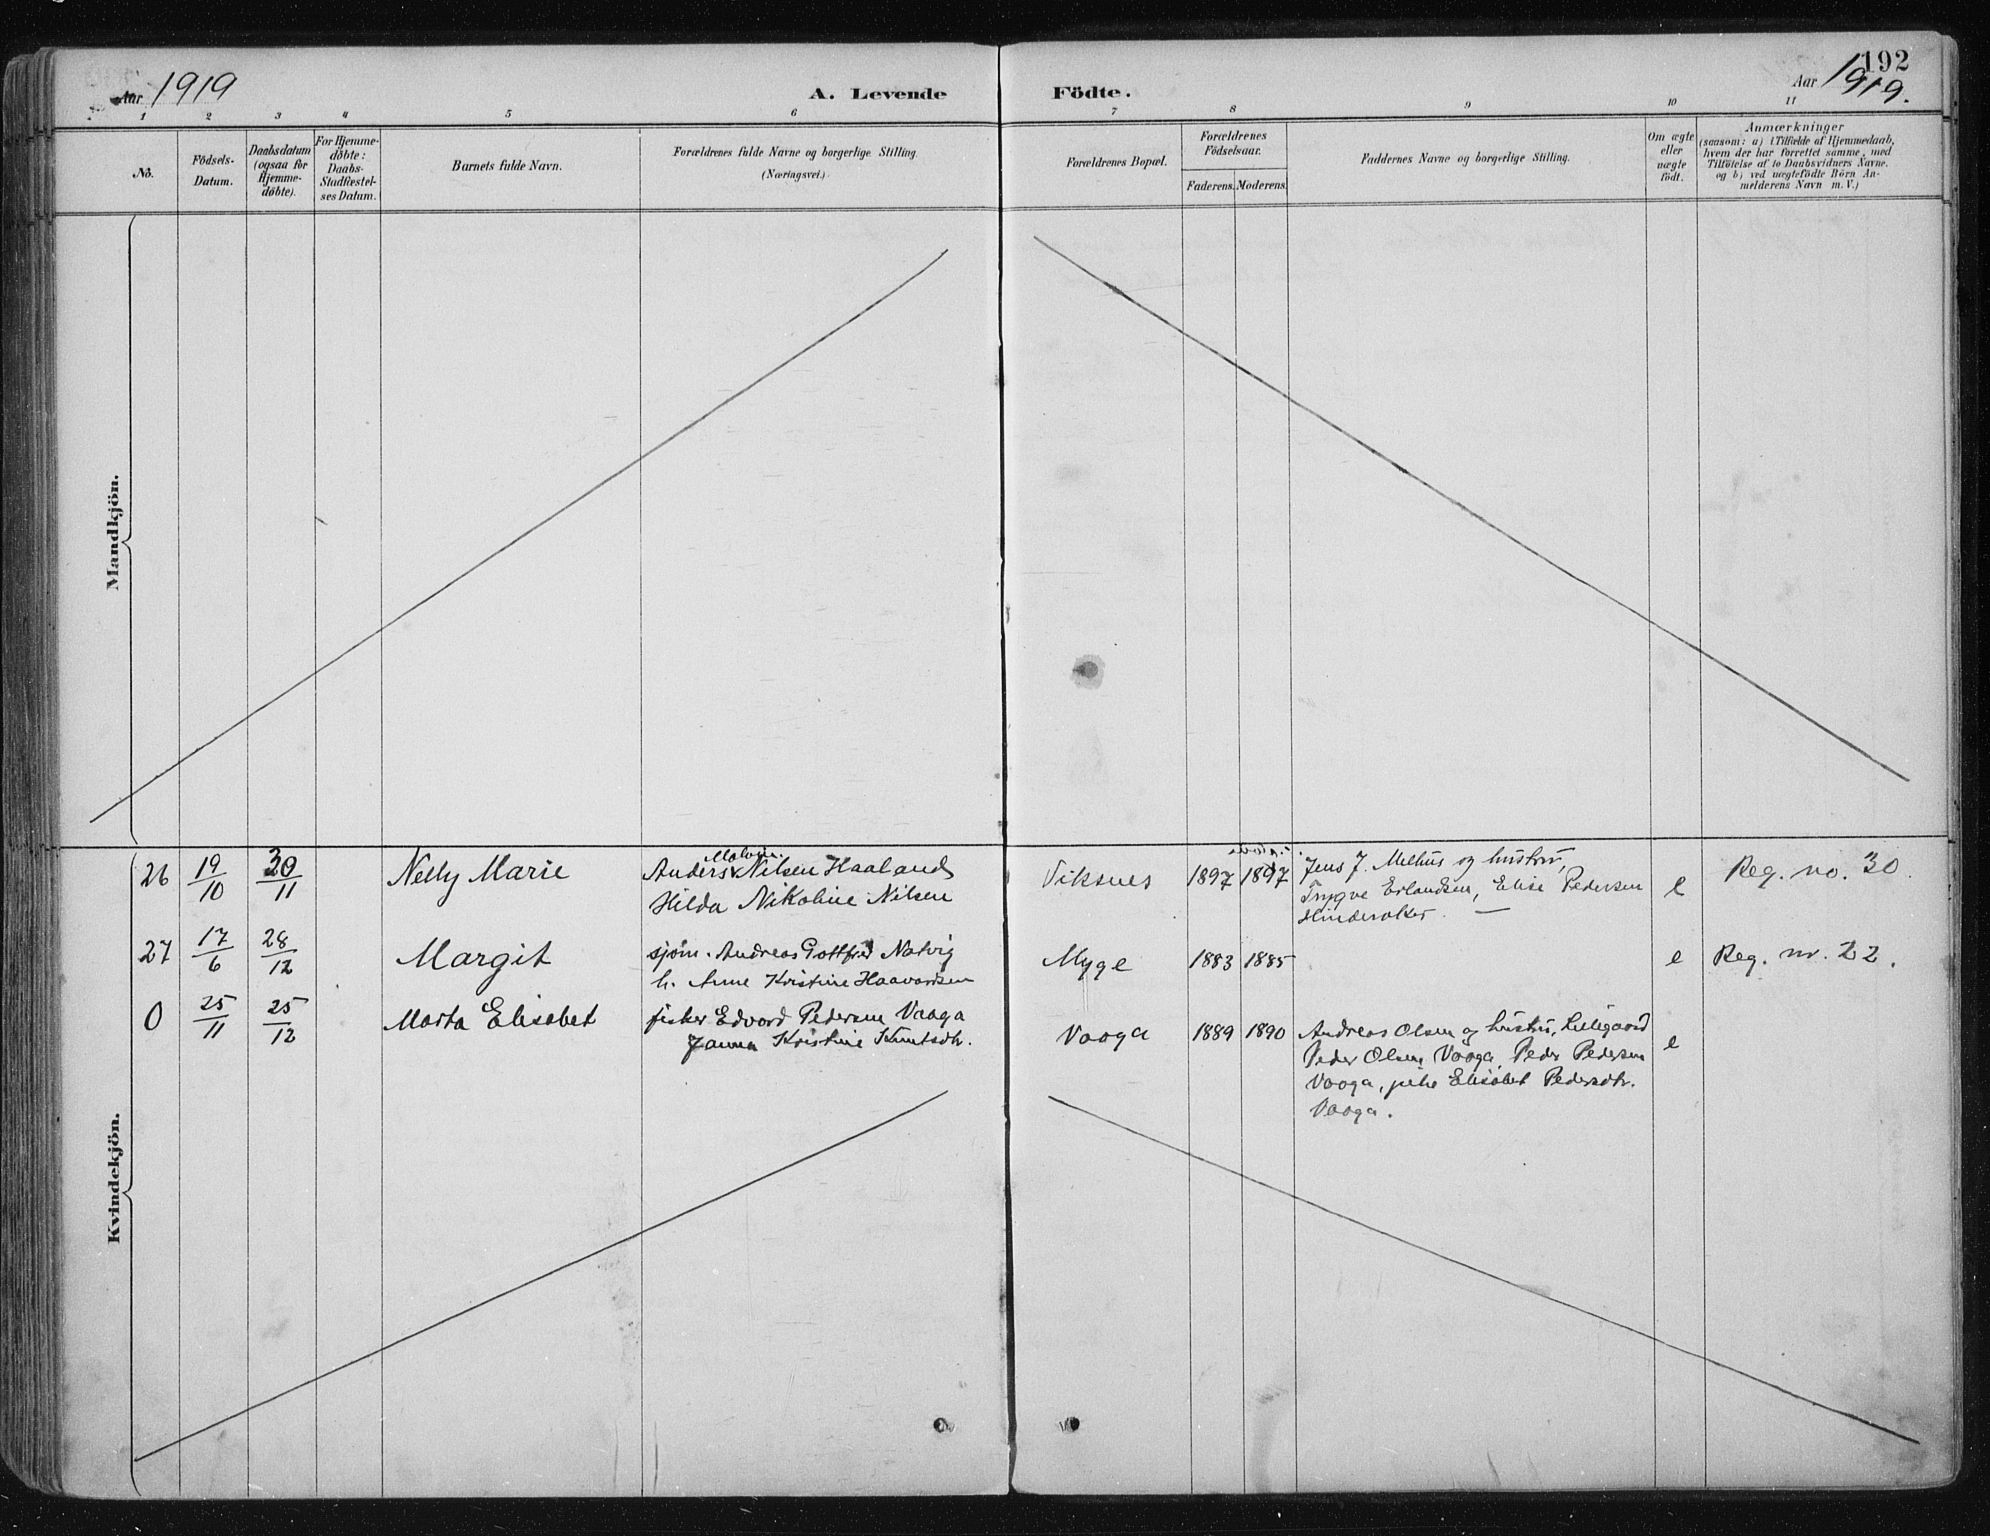 192
Aar 1919 A. Levende Födte. Aar 1919.
1 2 3 4 5 6 7 8 9 10 11
No.
Födsels-
Datum.
Daabsdatum
(ogsaa for
Hjemme-
døbte).
For Hjemme-
døbte:
Daabs-
Stadfæstel-
ses Datum.
Barnets fulde Navn.
Forældrenes fulde Navne og borgerlige Stilling.
(Næringsvei.)
Forældrenes Bopæl.
Forældrenes
Födselsaar.
Faderens. Moderens.
Faddernes Navne og borgerlige Stilling.
Om ægte
eller
uægte
født.
Anmærkninger
(saasom: a) i Tilfælde af Hjemmedaab,
hvem der har forrettet samme, med
Tilföielse af to Daabsvidners Navne.
og b) ved uægtefödte Börn An-
melderens Navn m. V.)
Mandkjön.
Kvindekjön.
26 19/10 30/11 Nelly Marie
Anders Nilsen Haaland
Hilda Nikoline Nilsen
Viksnes 1897 1897
Jens J. Melhus og hustru,
Trygve Erlandsen, Elise Pedersen
Hinderaker. —
e Reg. no. 30.
27 17/6 28/12 Margit
sjøm. Andreas Gottfred Natvig
h. Anne Kristine Haavardsen
Myge 1883 1885
e Reg. nr. 22.
0 25/11 25/12 Marta Elisabet
fisker Edvard Pedersen Vaaga
Janna Kristine Knutsdtr.
Vaaga 1889 1890
Andreas Olsen og hustru, Lillegaard
Peder Olsen Vaaga, Peder Pedersen
Vaaga, pike Elisabet Pedersdtr.
Vaaga.
e